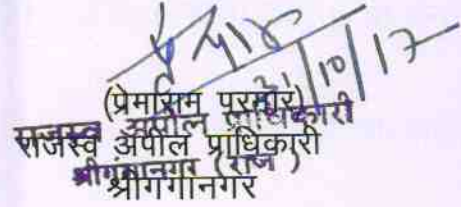 31/10/17
(प्रेमाराम परमार)
राजस्व अपील प्राधिकारी
राजस्व अपील प्राधिकारी
श्रीगंगानगर (राज)
श्रीगंगानगर